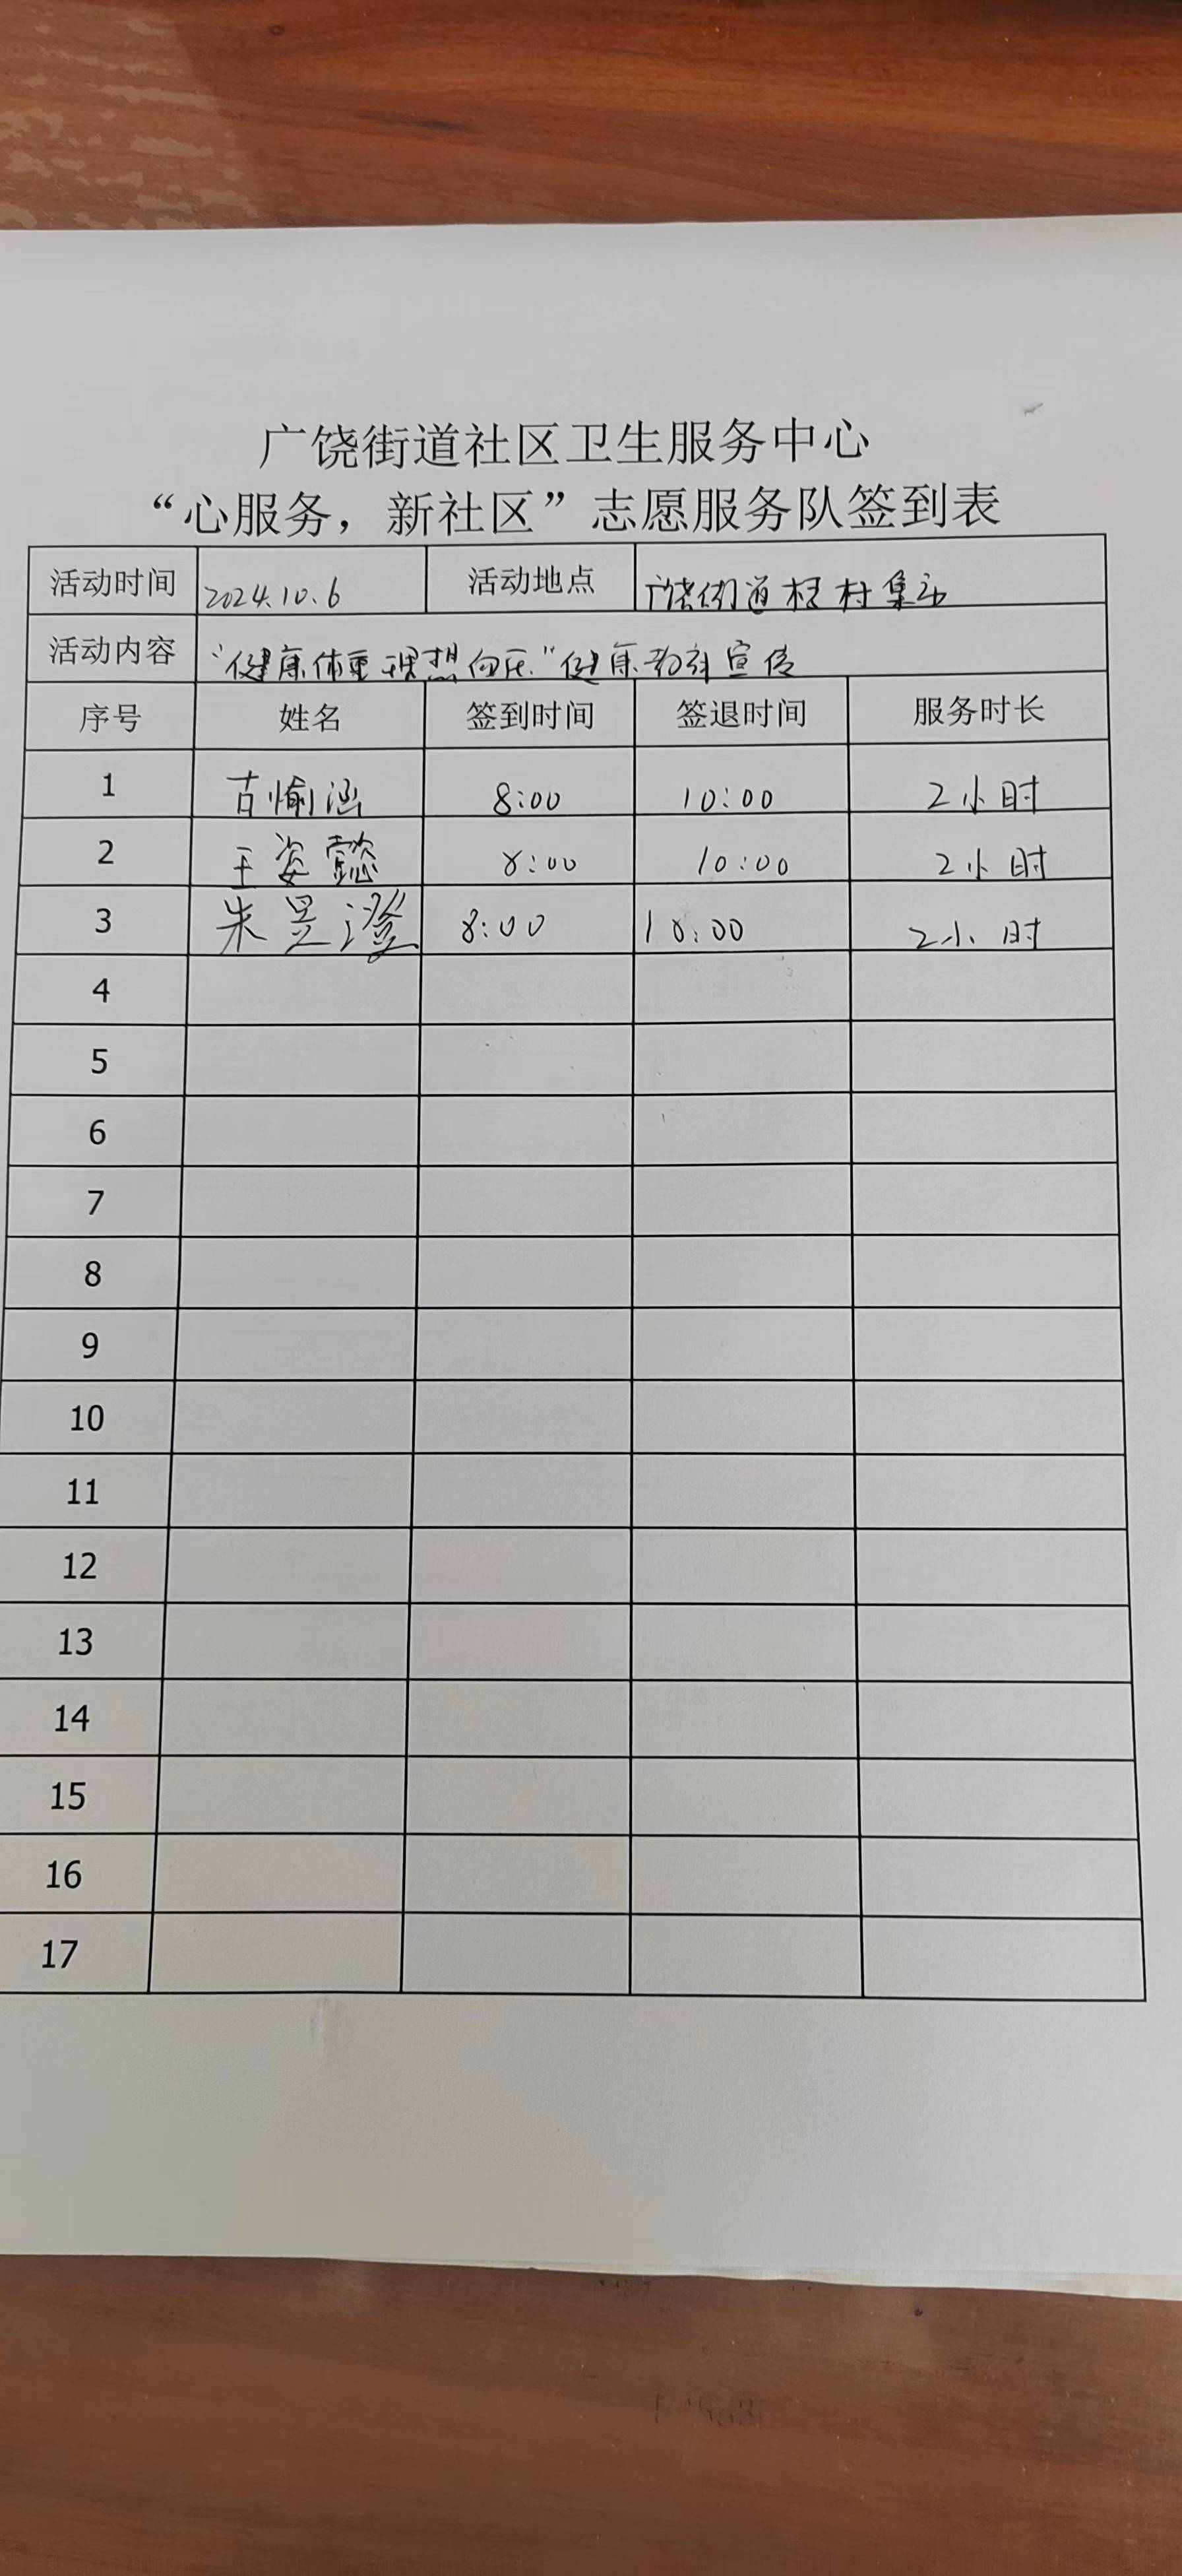 广饶街道社区卫生服务中心
“心服务，新社区”志愿服务队签到表
活动时间 2024.10.6 活动地点 广饶街道 村集
活动内容 “健康体重 理想血压”健康知识宣传
序号 姓名 签到时间 签退时间 服务时长
1 古愉涵 8:00 10:00 2小时
2 王姿懿 8:00 10:00 2小时
3 朱昱澄 8:00 10:00 2小时
4
5
6
7
8
9
10
11
12
13
14
15
16
17